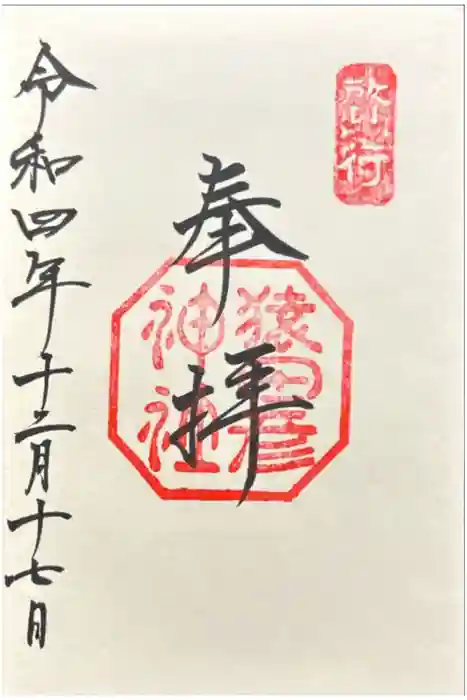 啓行
奉拝
猿田彦
神社
令和四年十二月十七日